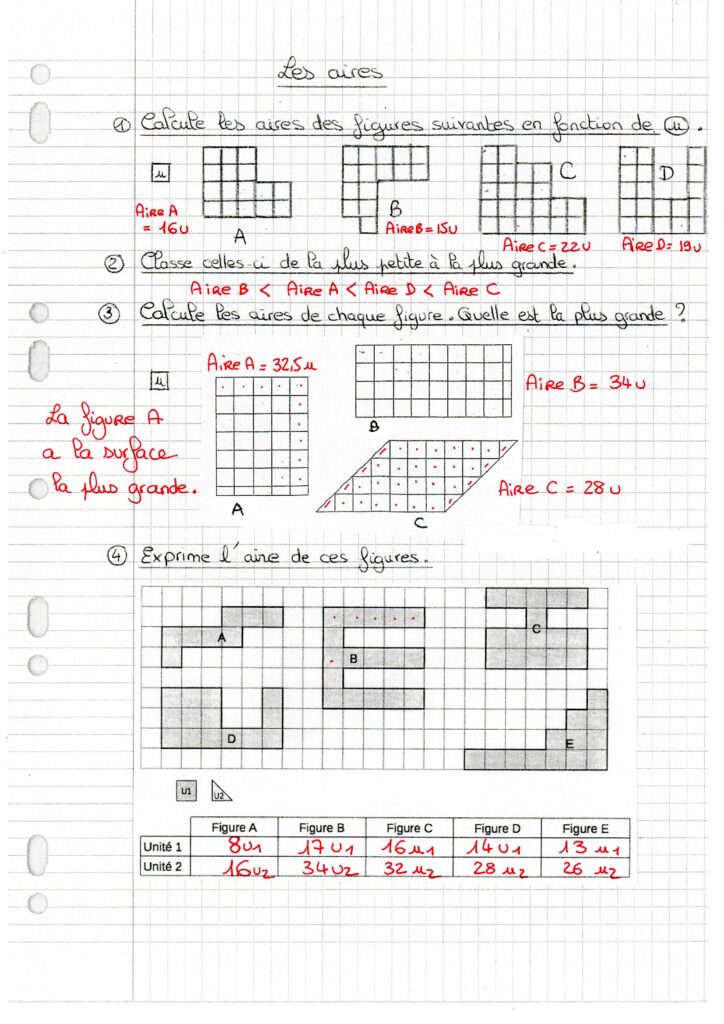 Les aires
① Calcule les aires des figures suivantes en fonction de u.
u
C
D
Aire A
= 16u
B
Aire B = 15u
A
Aire C = 22u
Aire D = 19u
② Classe celles-ci de la plus petite à la plus grande.
Aire B < Aire A < Aire D < Aire C
③ Calcule les aires de chaque figure. Quelle est la plus grande ?
Aire A = 32,5u
u
Aire B = 34u
La figure A
a la surface
la plus grande.
B
Aire C = 28u
A
C
④ Exprime l'aire de ces figures.
A
B
C
D
E
U1
U2
Figure A Figure B Figure C Figure D Figure E
Unité 1 8u1 17u1 16u1 14u1 13u1
Unité 2 16u2 34u2 32u2 28u2 26u2